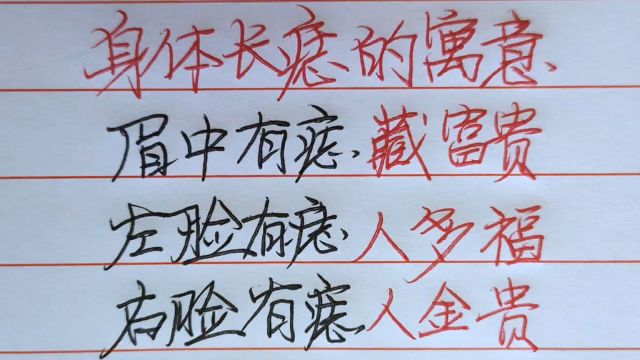 身体长痣的寓意
眉中有痣、藏富贵
左脸有痣、人多福
右脸有痣、人金贵